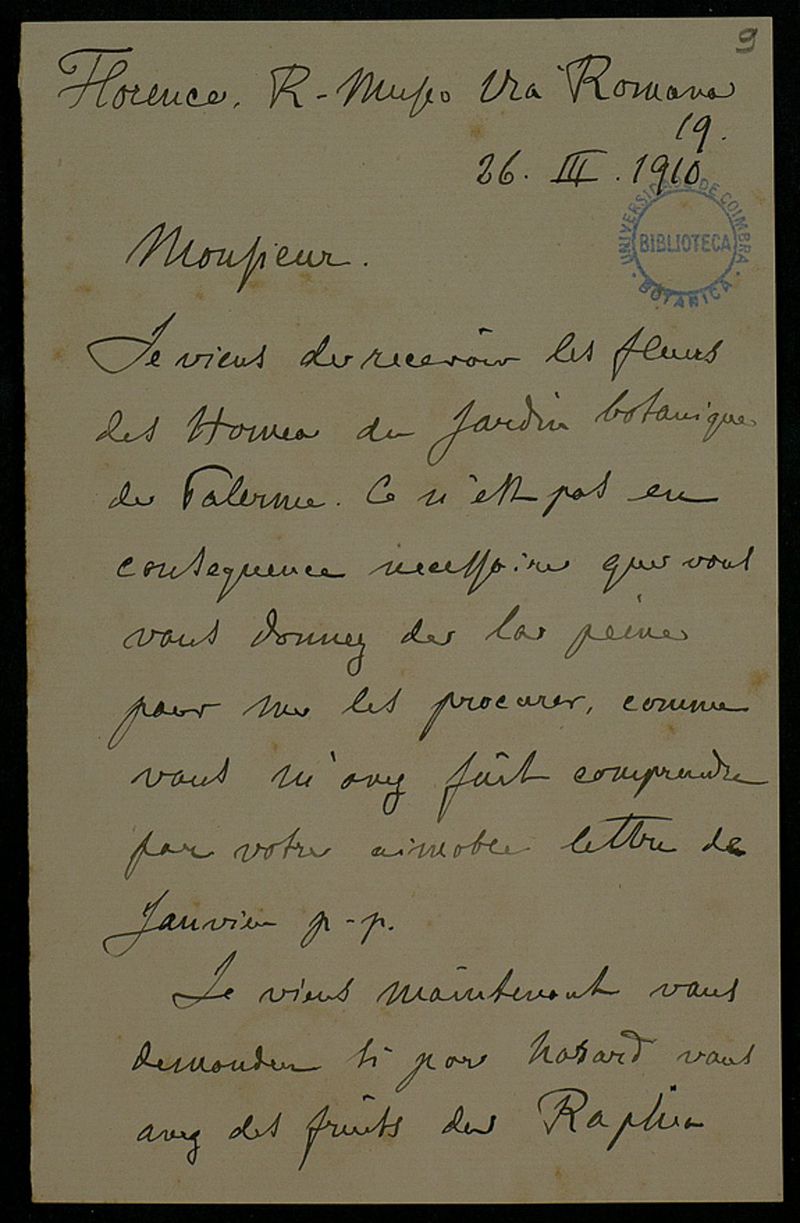 9
Florence. R-Museo Via Romana
19.
26. III. 1910
UNIVERSIDADE DE COIMBRA
BIBLIOTECA
BOTANICA
Monsieur.
Je viens de recevoir les fleurs
des Howea du Jardin botanique
de Palerme. Ce n'est pas en
consequence necessaire que vous
vous donnez de la peine
pour me les procurer, comme
vous m'avez fait comprendre
par votre aimable lettre de
Janvier p-p.
Je viens maintenant vous
demander si par hasard vous
avez des fruits de Raphia